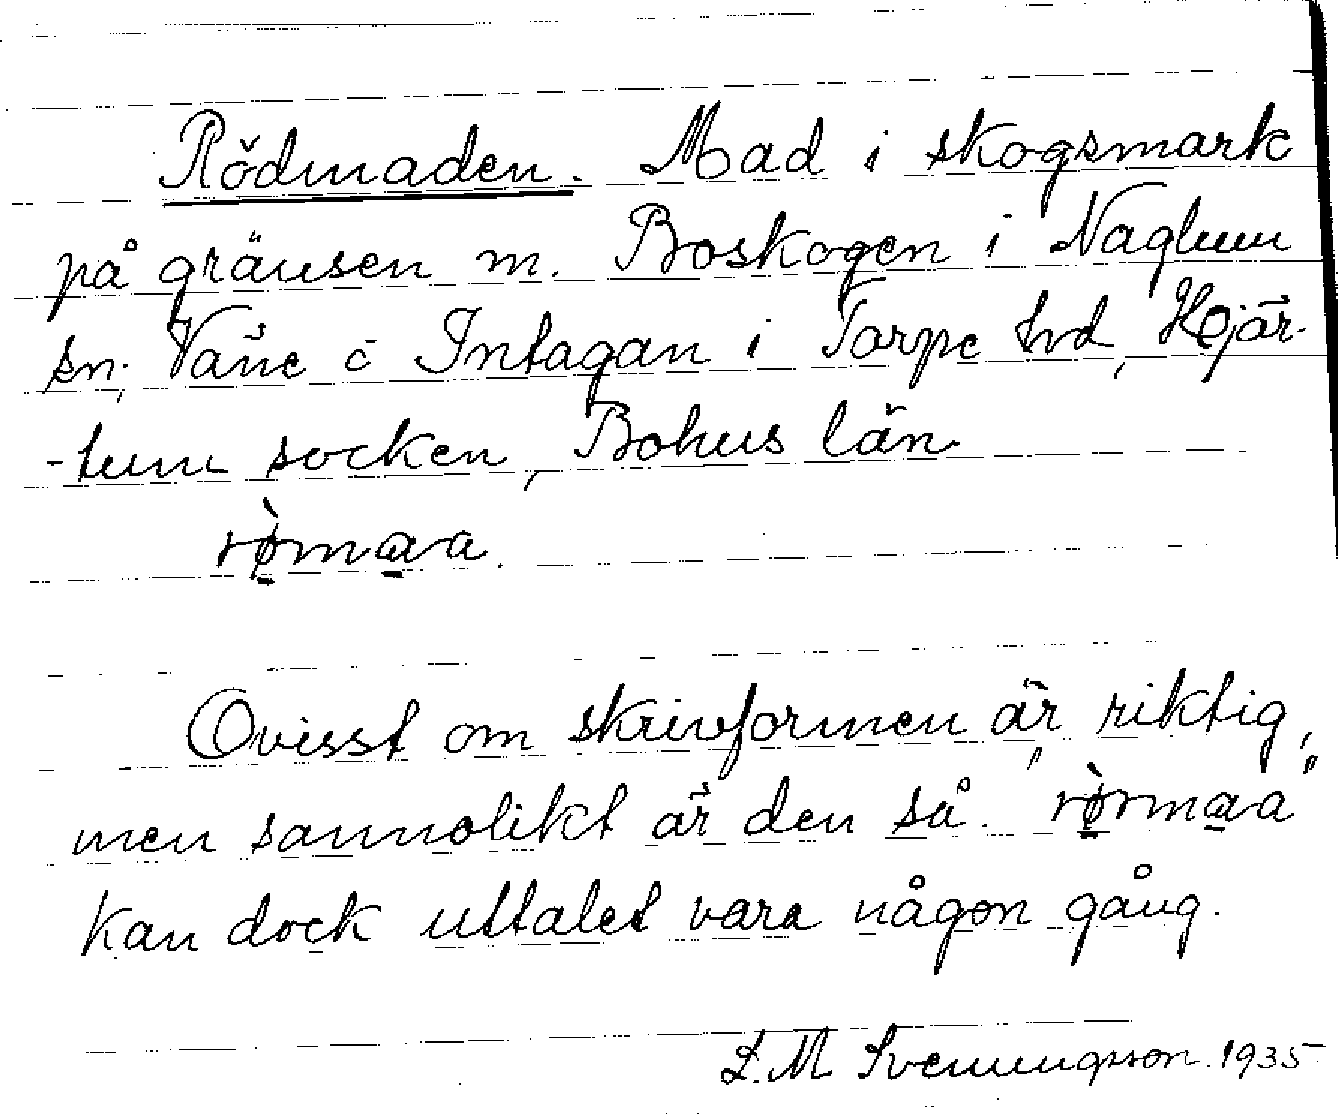 Rödmaden. Mad i skogsmark
på gränsen m. Boskogen i Naglum
sn, Väne o Intagan i Torpe hd, Hjär-
-tum socken, Bohus län.
rø̀maa.
Ovisst om skrivformen är riktig,
men sannolikt är den så. "rø̀rmaa"
kan dock uttalet vara någon gång.
L.M Svenungsson. 1935